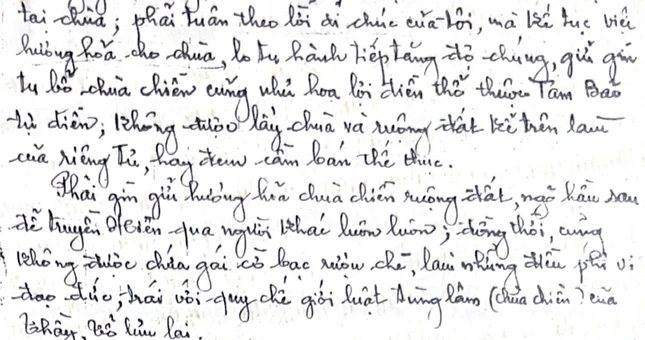 tại chùa; phải tuân theo lời di chúc của tôi, mà kế tục việc
hương hỏa cho chùa, lo tu hành tiếp tăng độ chúng, giữ gìn
tu bổ chùa chiền cũng như hoa lời điền thổ thuộc Tam Bảo
tự điền; không được lấy chùa và ruộng đất kể trên làm
của riêng Tư, hay đem cầm bán thế thục.
Phải gìn giữ hương hỏa chùa chiền ruộng đất, ngõ hầu sau
để truyền Hiền qua người khác luôn luôn; đồng thời, cũng
không được chứa gái cờ bạc rượu chè, làm những điều phi vi
đạo đức, trái với quy chế giới luật tùng lâm (chùa chiền) của
thầy, tổ lưu lại.